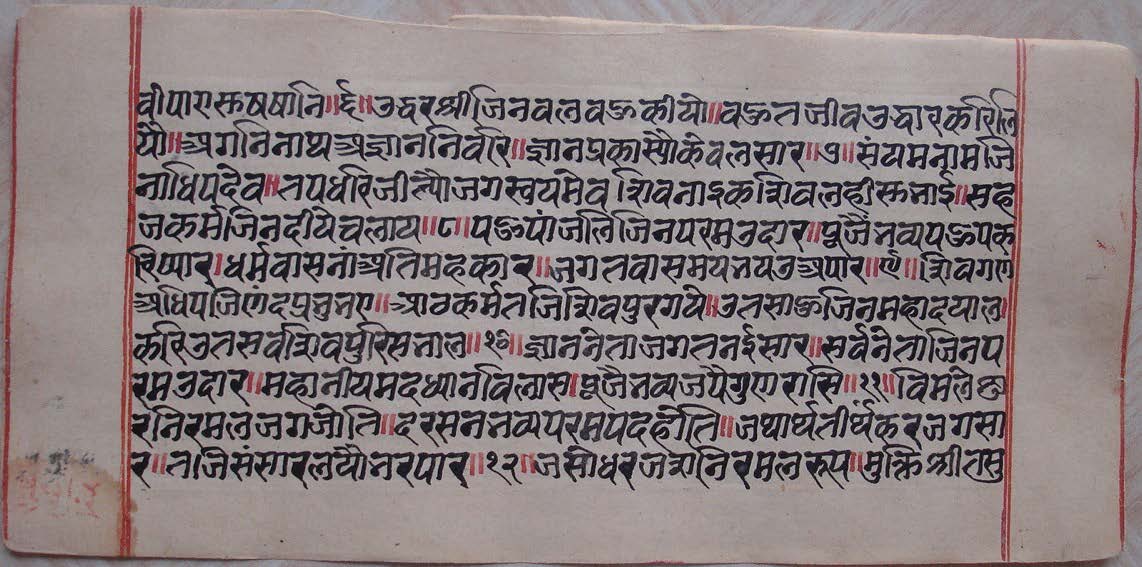 वीपागस्तषर्षानि॥६॥उद्वरश्रीजिनवलवऊकीयो॥वऊतजीवउद्वारकरिलि
यौ॥अगनिनाथअज्ञाननिर्वारि॥ज्ञानप्रकास्यौकेवलसार॥७॥संयमनामजि
नाधिपदेव॥तपधरिजीत्यौजगस्वयमेवशिवनाइकशिवलहीस्तनाई॥सह
जकर्मजिनदीयेचलाय॥८॥पऊपांजलिजिनपरमउदार॥पूजैंनव्यपऊपक
रिप्यार।धर्मवासनांअतिमहकार॥जगतवासमयनयउअपार॥९॥शिवगण
अधिपजिणंदप्रनुनए॥आठकर्मतजिशिवपुरगये॥उतसाऊजिनमहादयाल
करिउतसर्वशिवपुरिसनाल॥१०॥ज्ञाननेताजगतनईसार॥सर्वनेताजिनप
रमउदार॥महानीयमदध्यानविलास।पूजैनव्यजपैगुणरासि॥११॥विमले
रनिरमलजगजोति॥दरसननव्यपरमपदहोति॥जथार्थतीर्थंकरजगसा
र॥तजिसंसारलयौनरपार॥१२॥जसोधरजशनिरमलरूप॥मुक्तिश्रीतसु